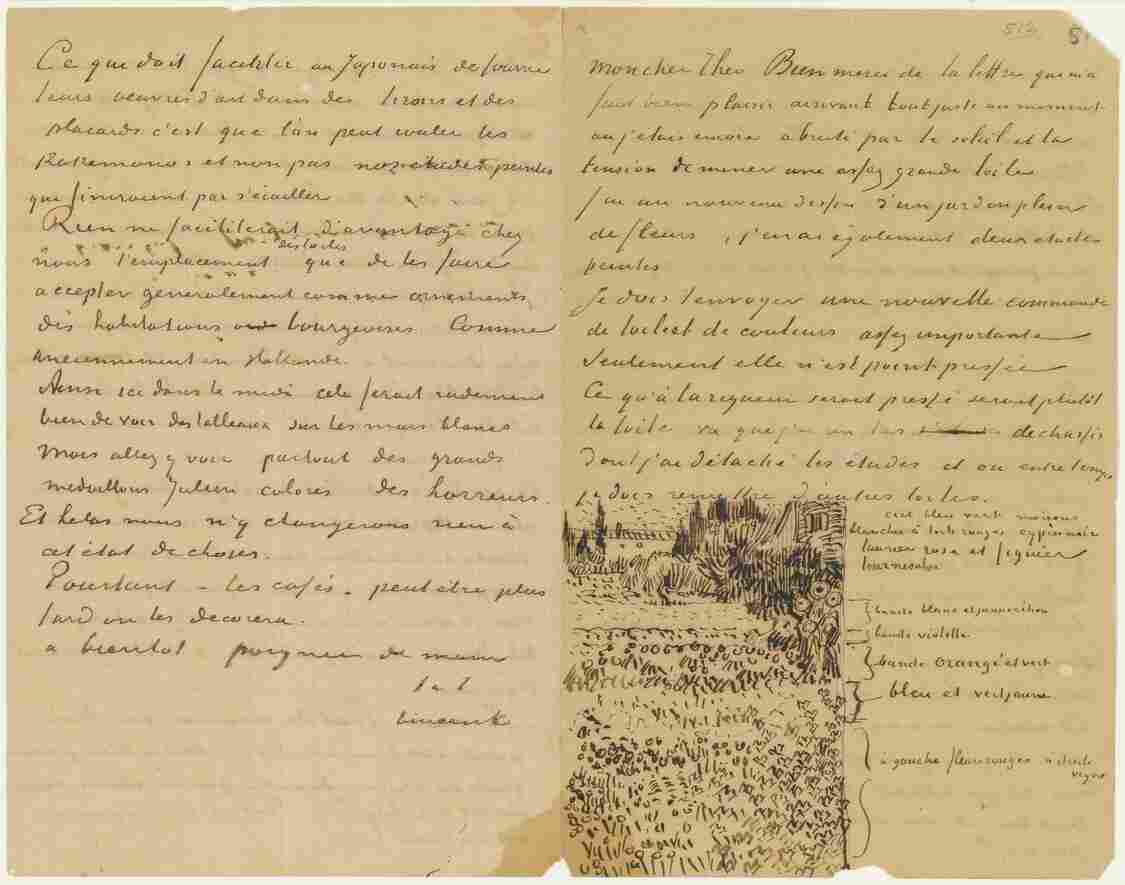 Ce que doit faciliter au Japonais de fourrer
leurs oeuvres d'art dans des tiroirs et des
placards c'est que l'on peut rouler les
Kakemonos et non pas nos etudes peintes
que finiraient par s'écailler.
Rien ne faciliterait davantage chez
nous l'emplacement des toiles que de les faire
accepter generalement comme ornements
des habitations bourgeoises. Comme
anciennement en Hollande.
Ainsi ici dans le midi cela ferait rudement
bien de voir des tableaux sur les murs blancs
Mais allez y voir partout des grands
medaillons Julien coloriés des horreurs.
Et helas nous n'y changerons rien à
cet état de choses.
Pourtant - les cafés - peut être plus
tard on les decorera.
a bientot poignee de main
t. à t.
Vincent
512
Mon cher Theo Bien merci de ta lettre qui m'a
fait bien plaisir arrivant tout juste au moment
où j'etais encore abruti par le soleil et la
tension de mener une assez grande toile
J'ai un nouveau dessin d'un jardin plein
de fleurs, j'en ai également deux etudes
peintes
Je dois t'envoyer une nouvelle commande
de toile et de couleurs assez importante
Seulement elle n'est point pressée
Ce qu'à la rigueur serait pressé serait plutôt
la toile vu que j'ai un tas de chassis
dont j'ai détaché les études et où entretemps
je dois remettre d'autres toiles.
ciel bleu vert maisons
blanches à toits rouges cyprès noirs
laurier rose et figuier
tournesols
bande blanc et jaune citron
bande violette
bande orangé et vert
bleu et vert jaune
à gauche fleurs rouges à droite
vigne